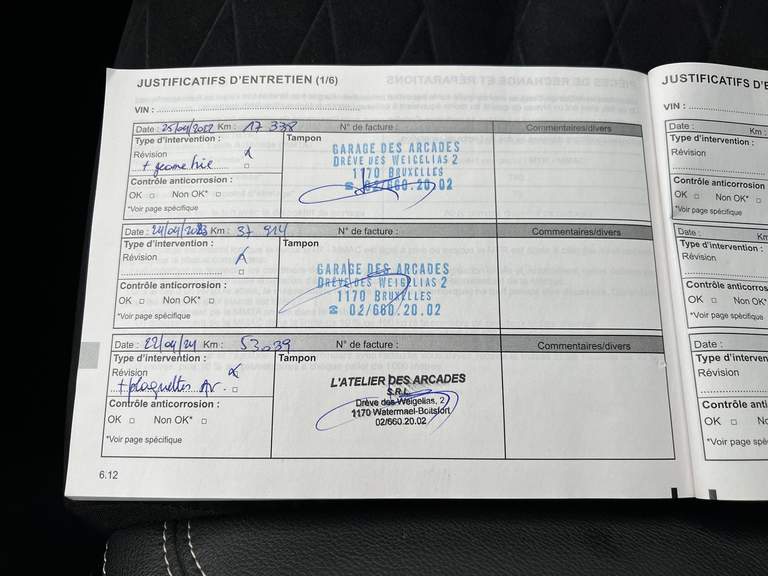 JUSTIFICATIFS D'ENTRETIEN (1/6)
VIN :
Date : 25/04/2022 Km : 17 338 N° de facture : Commentaires/divers
Type d'intervention : Tampon
Révision
+ geometrie
Contrôle anticorrosion :
OK Non OK*
*Voir page spécifique
GARAGE DES ARCADES
DRÈVE DES WEIGELIAS 2
1170 BRUXELLES
☎ 02/660.20.02
Date : 24/04/2023 Km : 37 914 N° de facture : Commentaires/divers
Type d'intervention : Tampon
Révision
Contrôle anticorrosion :
OK Non OK*
*Voir page spécifique
GARAGE DES ARCADES
DRÈVE DES WEIGELIAS 2
1170 BRUXELLES
☎ 02/660.20.02
Date : 22/04/24 Km : 53039 N° de facture : Commentaires/divers
Type d'intervention : Tampon
Révision
+ plaquettes Av.
Contrôle anticorrosion :
OK Non OK*
*Voir page spécifique
L'ATELIER DES ARCADES
S.R.L.
Drève des Weigelias, 2
1170 Watermael-Boitsfort
02/660.20.02
6.12
JUSTIFICATIFS D'E
VIN :
Date : Km :
Type d'intervention :
Révision
Contrôle anticorrosion :
OK Non OK*
*Voir page spécifique
Date : Km
Type d'intervention :
Révision
Contrôle anticorros
OK Non OK*
*Voir page spécifique
Date :
Type d'interven
Révision
Contrôle anti
OK No
*Voir page spé